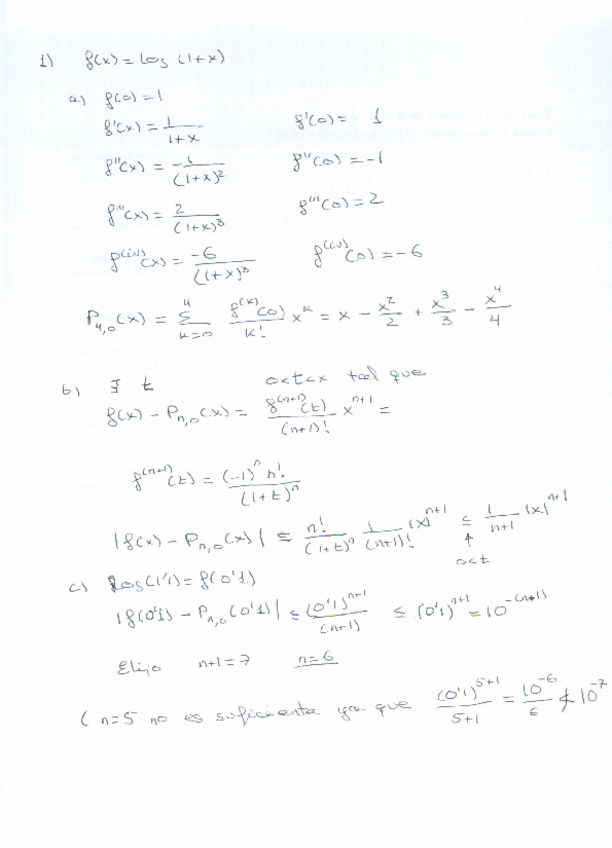 1) f(x) = log (1+x)
a) f(0) = 1
f'(x) = 1/(1+x)    f'(0) = 1
f''(x) = -1/(1+x)²    f''(0) = -1
f'''(x) = 2/(1+x)³    f'''(0) = 2
f^(iv)(x) = -6/(1+x)³    f^(iv)(0) = -6
P₄,₀(x) = Σ_{k=0}^{4} f^(k)(0)/k! x^k = x - x²/2 + x³/3 - x⁴/4
b) ∃ t    0<t<x tal que
f(x) - Pₙ,₀(x) = f^(n+1)(t)/(n+1)! x^(n+1) =
f^(n+1)(t) = (-1)^n n!/(1+t)^n
|f(x) - Pₙ,₀(x)| ≤ n!/(1+t)^n 1/(n+1)! |x|^(n+1) ≤ 1/(n+1) |x|^(n+1)
↑
0<t
c) log(1'1) = f(0'1)
|f(0'1) - Pₙ,₀(0'1)| ≤ (0'1)^(n+1)/(n+1) ≤ (0'1)^(n+1) = 10^-(n+1)
Elijo n+1=7 n=6
( n=5 no es suficiente ya que (0'1)^(5+1)/(5+1) = 10^-6/6 ≮ 10^-7